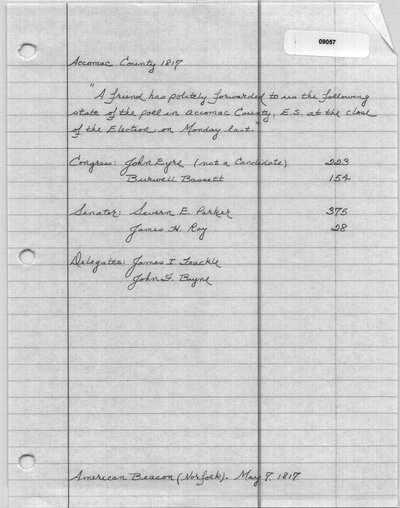 09057
Accomac County 1817
"A friend has politely forwarded to us the following
state of the poll in Accomac County, E.S. at the close
of the Election on Monday last."
Congress: John Eyre (not a Candidate) 223
Burwell Bassett 154
Senator: Severn E. Parker 375
James H. Roy 28
Delegates: James I. Teackle
John F. Bayne
American Beacon (Norfolk). May 7, 1817